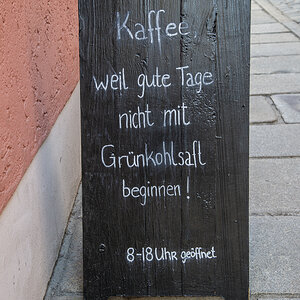 Kaffee,
weil gute Tage
nicht mit
Grünkohlsaft
beginnen!
8-18 Uhr geöffnet